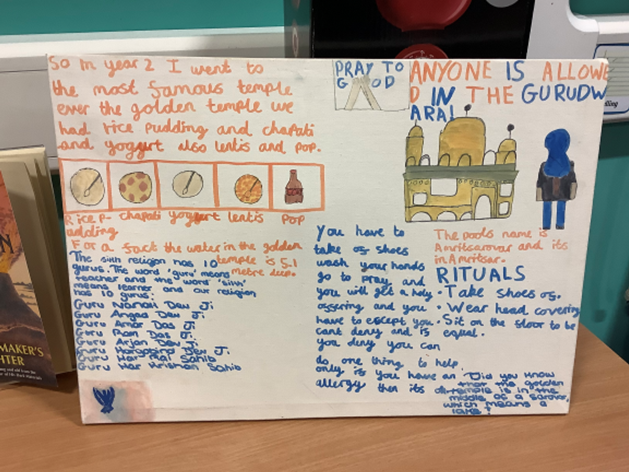 So in year 2 I went to
the most famous temple
ever the golden temple we
had rice pudding and chapati
and yoggurt also lentis and pop.
Rice p- chapati yoggurt lentis pop
udding
For a fact the water in the golden
temple is 5.1
metre deep.
The sikh religion has 10
gurus. The word 'guru' means
teacher and the word 'sikh'
means learner and our religion
has 10 gurus:
Guru Nanak Dev Ji.
Guru Angad Dev Ji.
Guru Amar Das Ji.
Guru Ram Das Ji.
Guru Arjan Dev Ji.
Guru Hargobind Dev Ji.
Guru Har Rai Sahib
Guru Har Krishan Sahib
PRAY TO
GOD
ANYONE IS ALLOWE
D IN THE GURUDW
ARA!
you have to
take of shoes
wash your hands
go to pray and
you will get a holy
offering and you
have to except you
cant deny and is
you deny you can
do one thing to help
only is you have an
allergy then its ok
The pools name is
Amritsarovar and its
in Amritsar.
RITUALS
• Take shoes of.
• Wear head covering
• Sit on the floor to be
equal.
Did you know
that the golden
temple is in the
middle of a sarovar,
which means a
lake!
MAKER'S
HTER